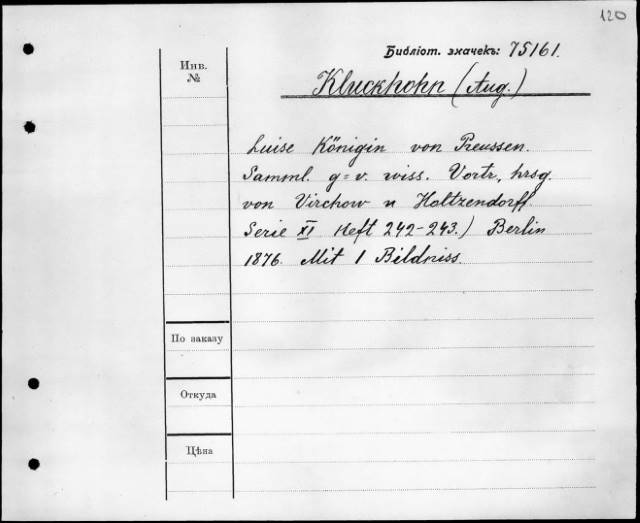 120
Библіот. значекъ: 75161.
Инв.
№
Kluckhohn (Aug.)
Luise Königin von Preussen.
Samml. g=v. wiss. Vortr., hrsg.
von Virchow u Holtzendorff.
Serie XI Heft 242-243.) Berlin
1876. Mit 1 Bildniss.
По заказу
Откуда
Цѣна